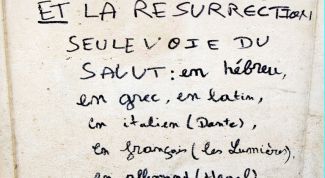 ET LA RESURRECTION
SEULE VOIE DU
SALUT: en hébreu,
en grec, en latin,
en italien (Dante),
en français (les Lumières),
en allemand (Hegel)